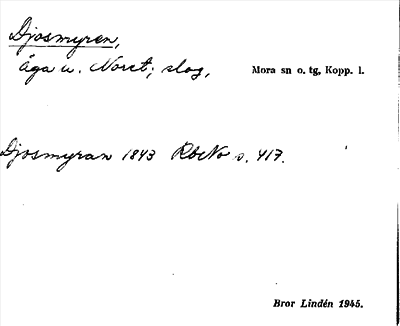 Djosmyren,
äga u. Noret; slog,
Mora sn o. tg, Kopp. l.
Djosmyran 1843 RbNo s. 417.
Bror Lindén 1945.